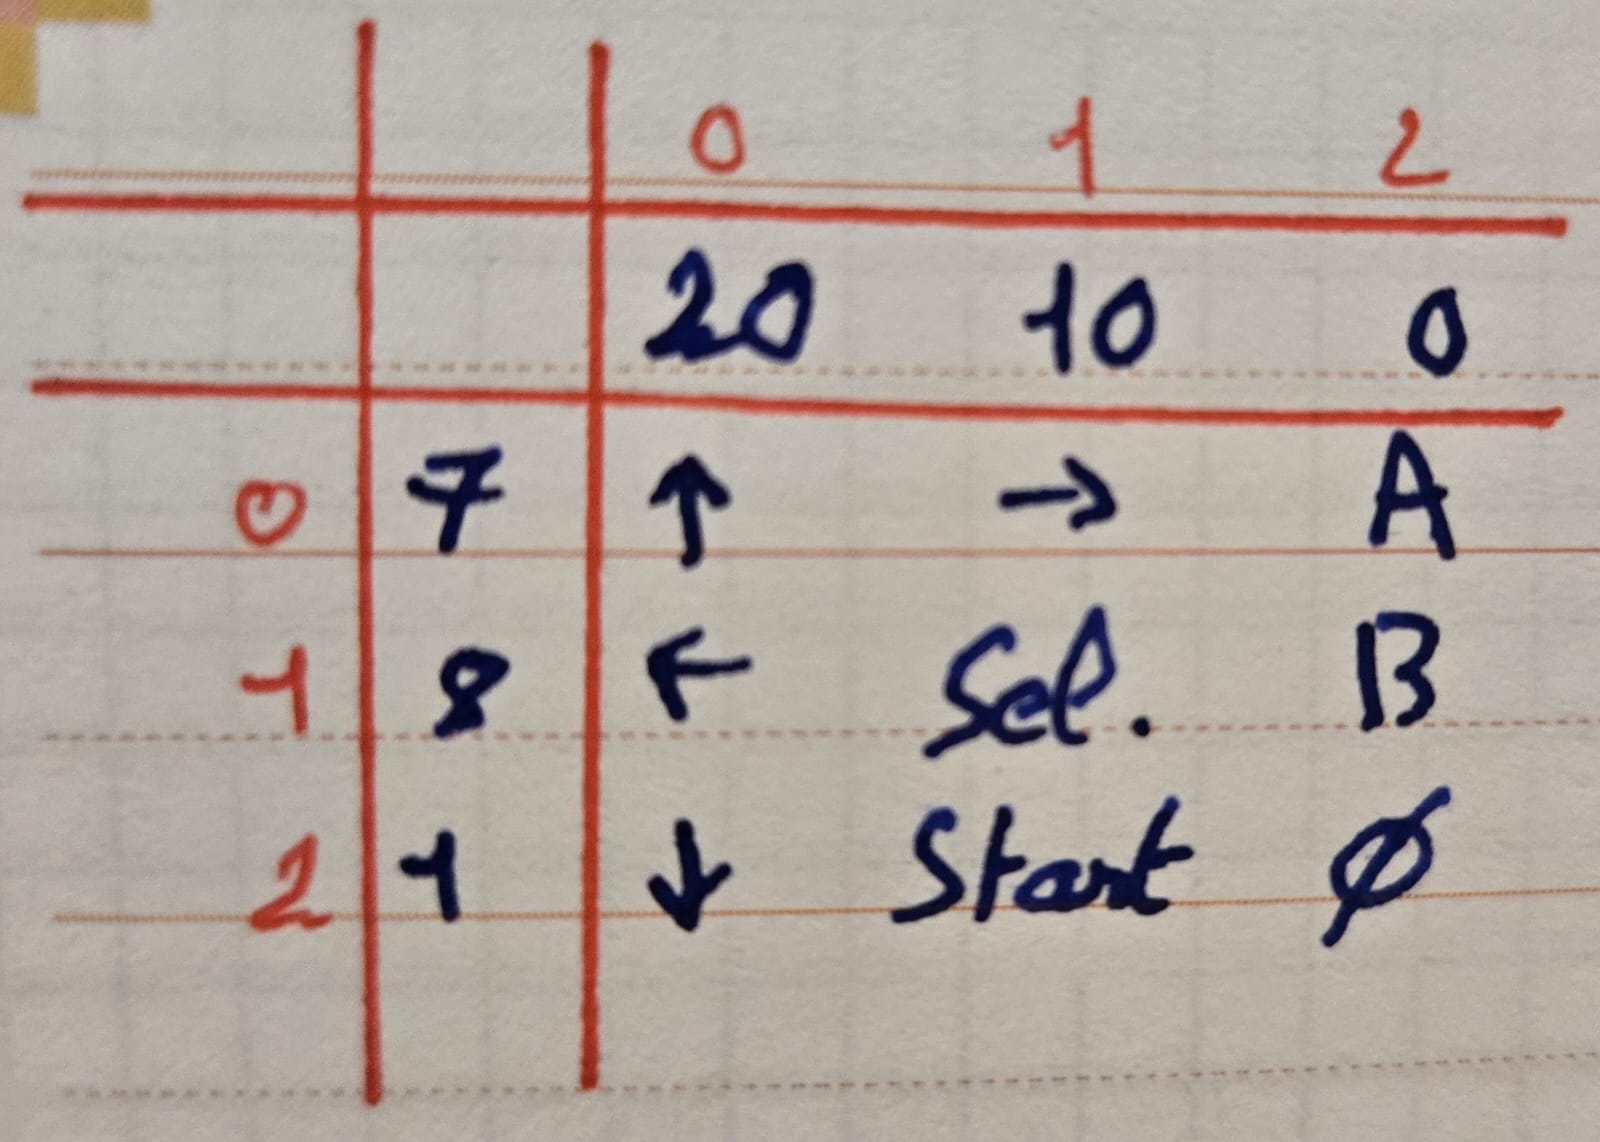 0 1 2
20 10 0
0 7 ↑ → A
1 8 ← Sel. B
2 1 ↓ Start Ø